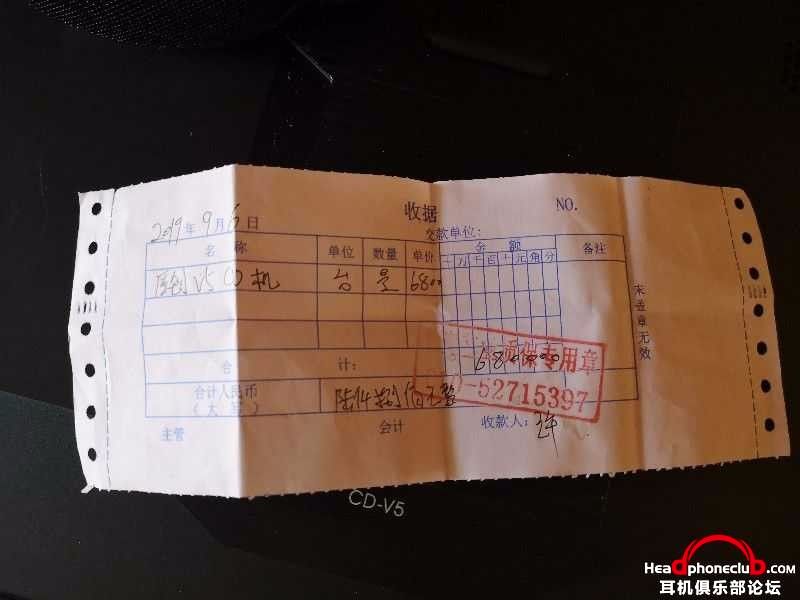 收据
NO.
2019年9月6日
交款单位：
名 称 单位 数量 单价 金额 备注
十万千百十元角分
V5 CD机 台 6800
合 计： 680000
合计人民币
（大写）
陆仟捌佰元整
主管 会计 收款人：
未盖章无效
质保专用章
-52715397
CD-V5
Headphoneclub.com
耳机俱乐部论坛